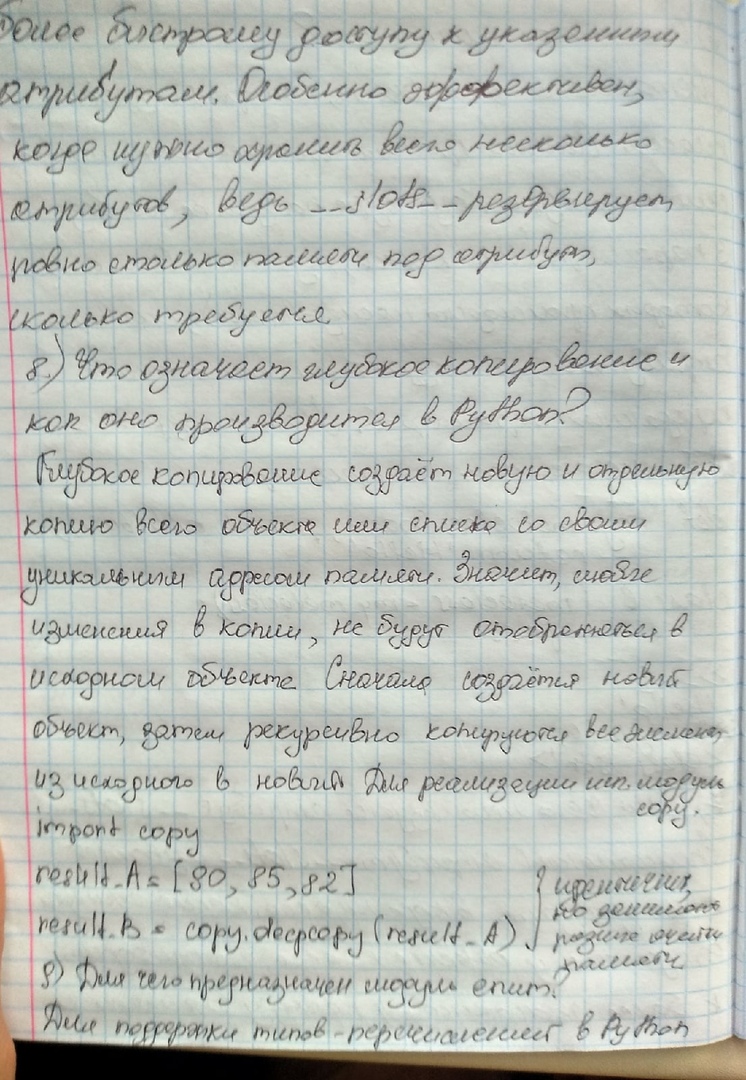 более быстрому доступу к указанным
атрибутам. Особенно эффективен,
когда нужно хранить всего несколько
атрибутов, ведь __slots__ резервирует
ровно столько памяти под атрибут,
сколько требуется
8.) Что означает глубокое копирование и
как оно производится в Python?
Глубокое копирование создаёт новую и отдельную
копию всего объекта или списка со своим
уникальным адресом памяти. Значит, любые
изменения в копии, не будут отображаться в
исходном объекте Сначала создаётся новый
объект, затем рекурсивно копируются все элементы
из исходного в новый Для реализации исп. модуль
copy.
import copy
result_A = [80, 85, 82]
result_B = copy.deepcopy(result_A)
идентичны,
но занимают
разные ячейки
памяти
9) Для чего предназначен модуль enum?
Для поддержки типов-перечислений в Python